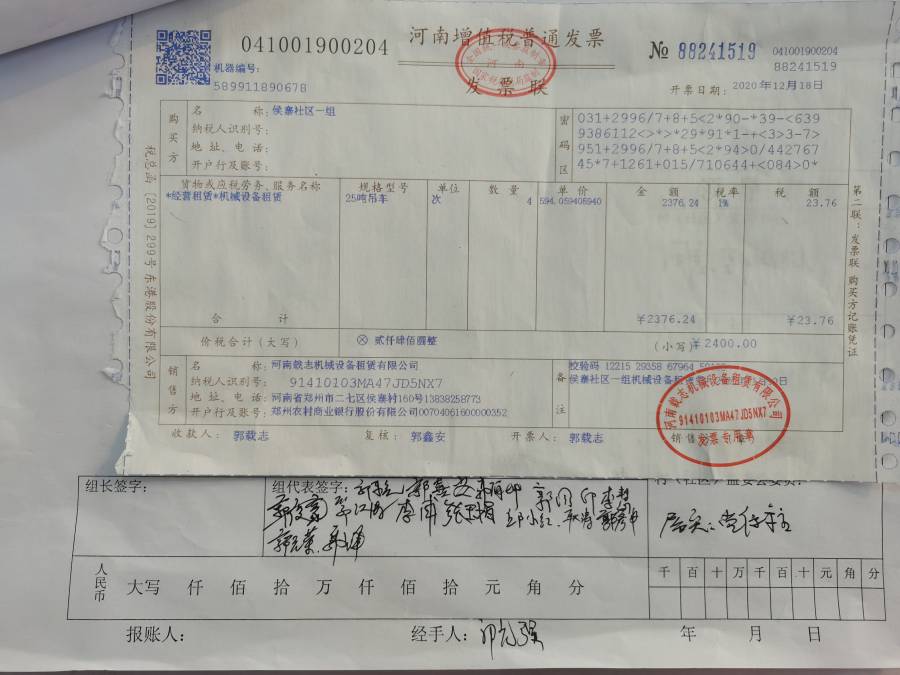 041001900204
河南增值税普通发票
发票联
№ 88241519
041001900204
88241519
机器编号:
589911890678
开票日期: 2020年12月18日
购买方
名 称: 侯寨社区一组
纳税人识别号:
地 址、电 话:
开户行及账号:
密码区
031+2996/7+8+5<2*90-*39-<639
9386112<>*>*29*91*1-+<3>3-7>
951+2996/7+8+5<2*94>0/442767
45*7+1261+015/710644+<084>0*
货物或应税劳务、服务名称 规格型号 单位 数 量 单 价 金 额 税率 税 额
*经营租赁*机械设备租赁 25吨吊车 次 4 594.059405940 2376.24 1% 23.76
合 计 ¥2376.24 ¥23.76
价税合计(大写) ⊗ 贰仟肆佰圆整 (小写) ¥2400.00
销售方
名 称: 河南载志机械设备租赁有限公司
纳税人识别号: 91410103MA47JD5NX7
地 址、电 话: 河南省郑州市二七区侯寨村160号13838258773
开户行及账号: 郑州农村商业银行股份有限公司00704061600000352
备注
校验码 12215 29358 67964
侯寨社区一组机械设备租赁
河南载志机械设备租赁有限公司
91410103MA47JD5NX7
发票专用章
收款人: 郭载志 复核: 郭鑫安 开票人: 郭载志 销售
税总函〔2019〕299号 东港股份有限公司
第二联:发票联 购买方记账凭证
组长签字: 组代表签字:
人民币 大写 仟 佰 拾 万 仟 佰 拾 元 角 分
千 百 十 万 千 百 十 元 角 分
报账人: 经手人: 年 月 日